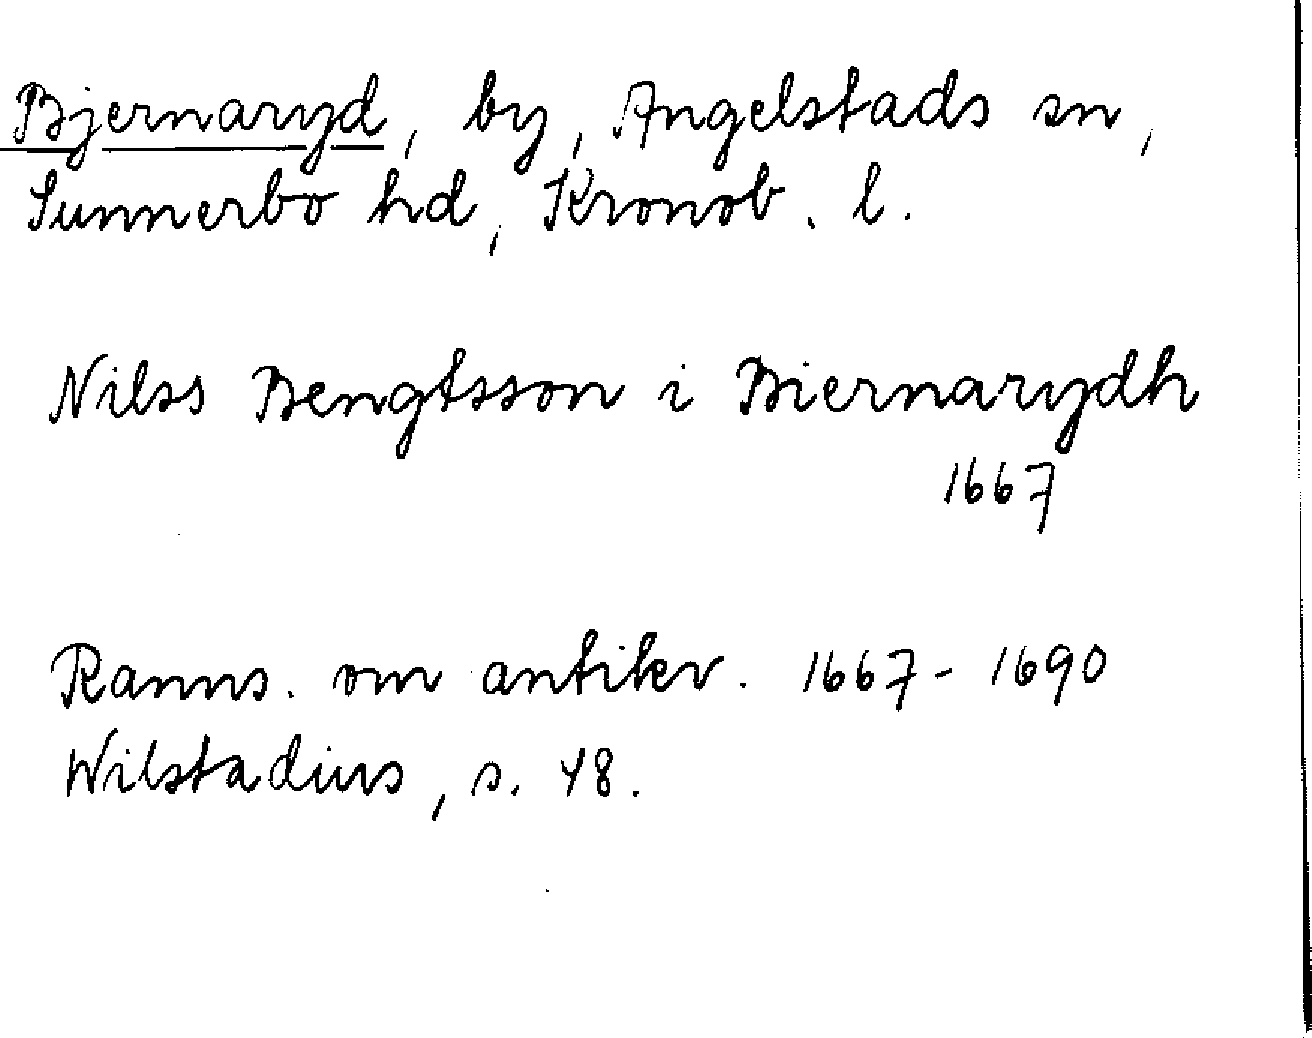 Bjernaryd, by, Angelstads sn,
Sunnerbo hd, Kronob. l.
Nilss Bengtsson i Biernarydh
1667
Ranns. om antikv. 1667-1690
Wilstadius, s. 48.